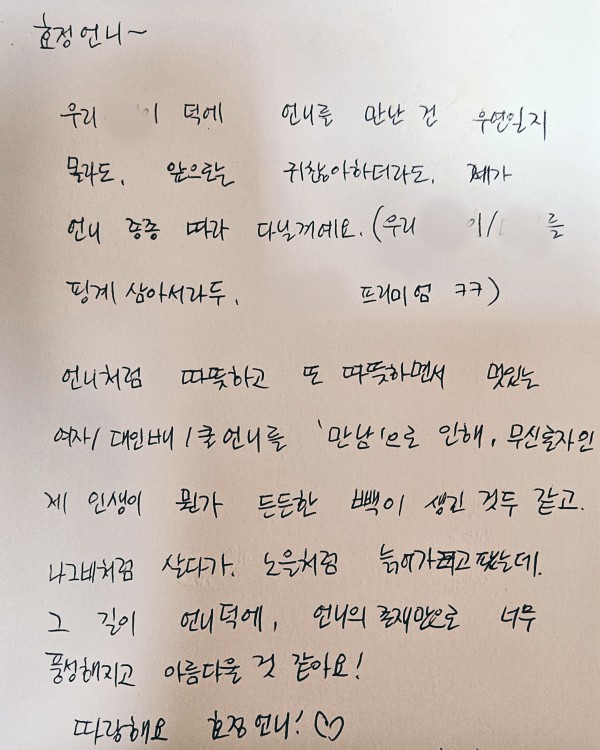 효정언니~
우리 이 덕에 언니를 만난 건 우연일지
몰라도, 앞으로는 귀찮아하더라도, 제가
언니 종종 따라 다닐게예요. (우리 기/ 를
핑계 삼아서라두, 프리미엄 ㅋㅋ)
언니처럼 따뜻하고 또 따뜻하면서 멋있는
여자/대인배니/쿨언니를 '만남'으로 인해, 무신론자인
제 인생이 뭔가 든든한 빽이 생긴 것두 같고.
나그네처럼 살다가, 노을처럼 늙어가려고 했는데,
그 길이 언니덕에, 언니의 존재만으로 너무
풍성해지고 아름다울 것 같아요!
따랑해요 효정언니! ♡